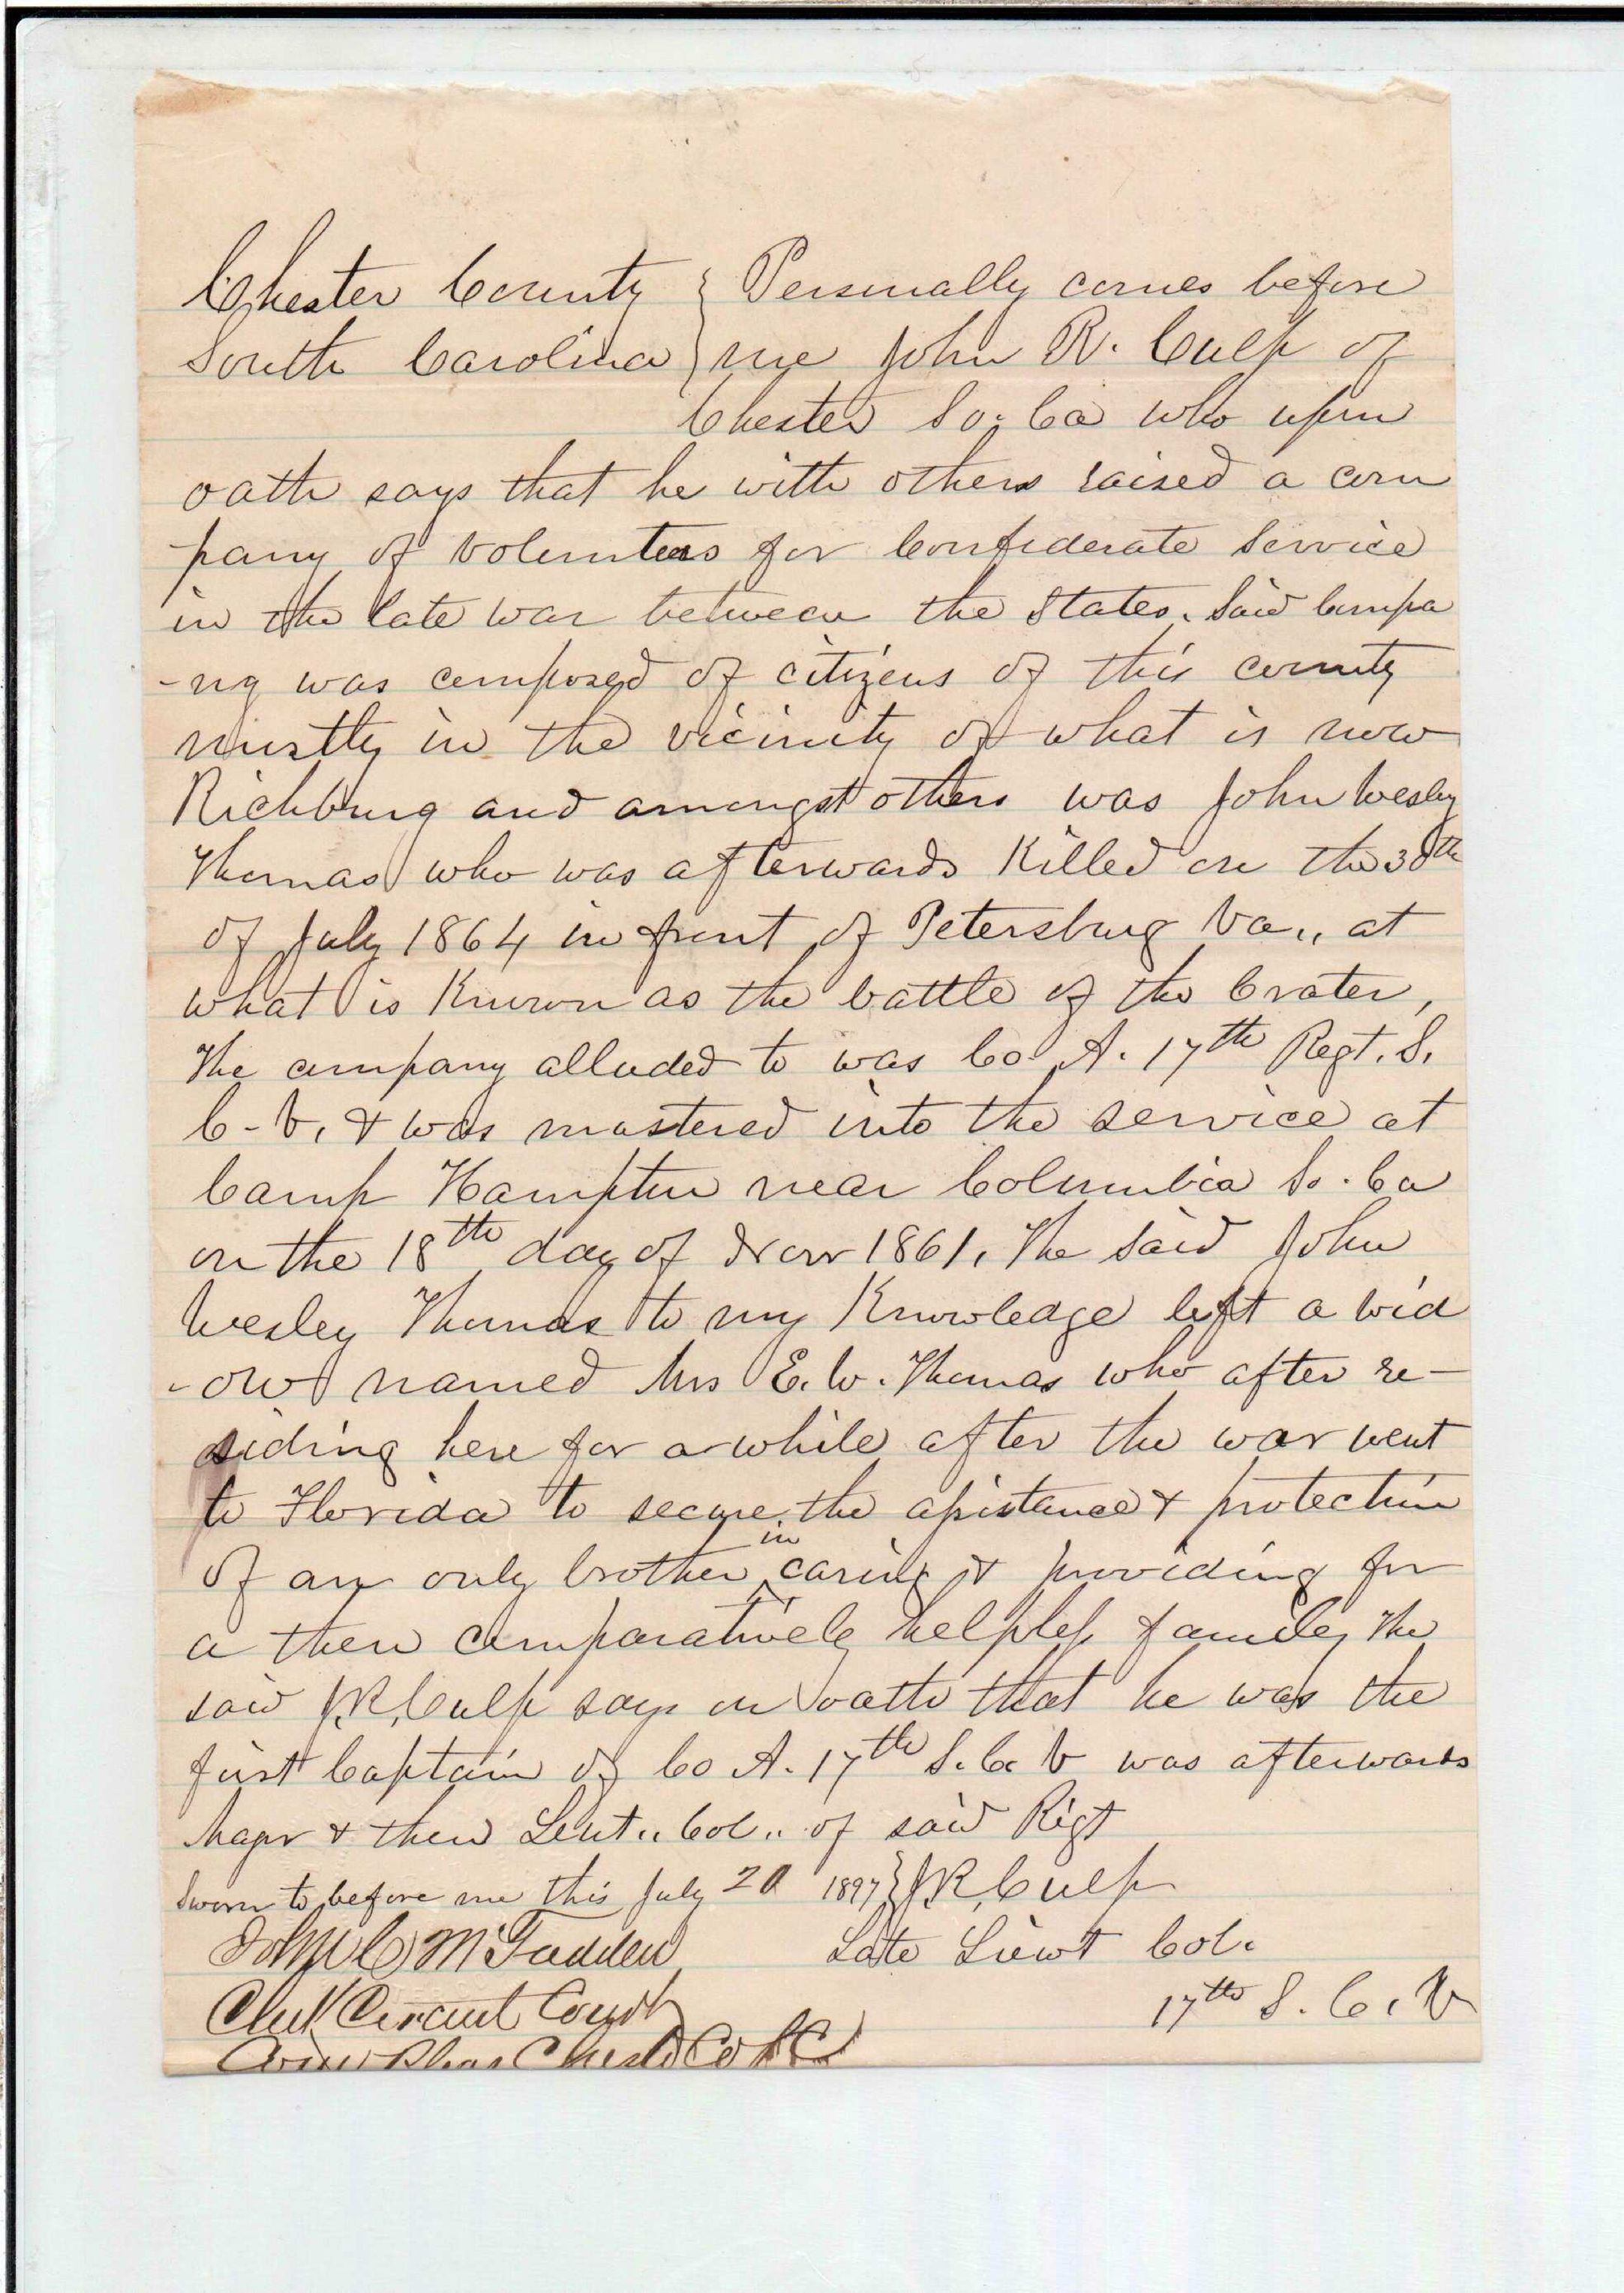 Chester County } Personally comes before
South Carolina } me John R. Culp of
Chester So. Ca who upon
oath says that he with others raised a com
pany of volunteers for Confederate Service
in the late war between the States. Said Compa
-ny was composed of citizens of this county
mostly in the vicinity of what is now
Richburg and amongst others was John Wesley
Thomas who was afterwards Killed on the 30th
of July 1864 in front of Petersburg Va,, at
what is Known as the battle of the Crater,
The company alluded to was Co. A. 17th Regt. S.
C. V. & was mustered into the service at
Camp Hampton near Columbia So. Ca
on the 18th day of Nov 1861. The said John
Wesley Thomas to my Knowledge left a wid
-ow named Mrs E. W. Thomas who after re-
siding here for a while after the war went
to Florida to secure the assistance & protection
of an only brother in caring & providing for
a then comparatively helpless family The
said J. R. Culp says on oath that he was the
first Captain of Co A. 17th S. C. V was afterwards
Major & then Leut,, Col,, of said Rigt
Sworn to before me this July 20 1897 } J. R. Culp
John C McFadden Late Lieut Col.
Clerk Circuit Court 17th S. C. V
Chester Co SC